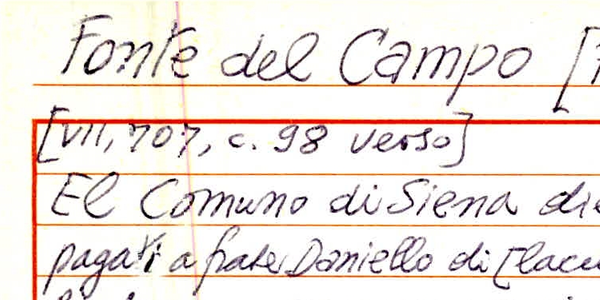 Fonte del Campo [
[VII, 707, c. 98 verso]
El Comuno di Siena die
pagati a frate Daniello di [lacu